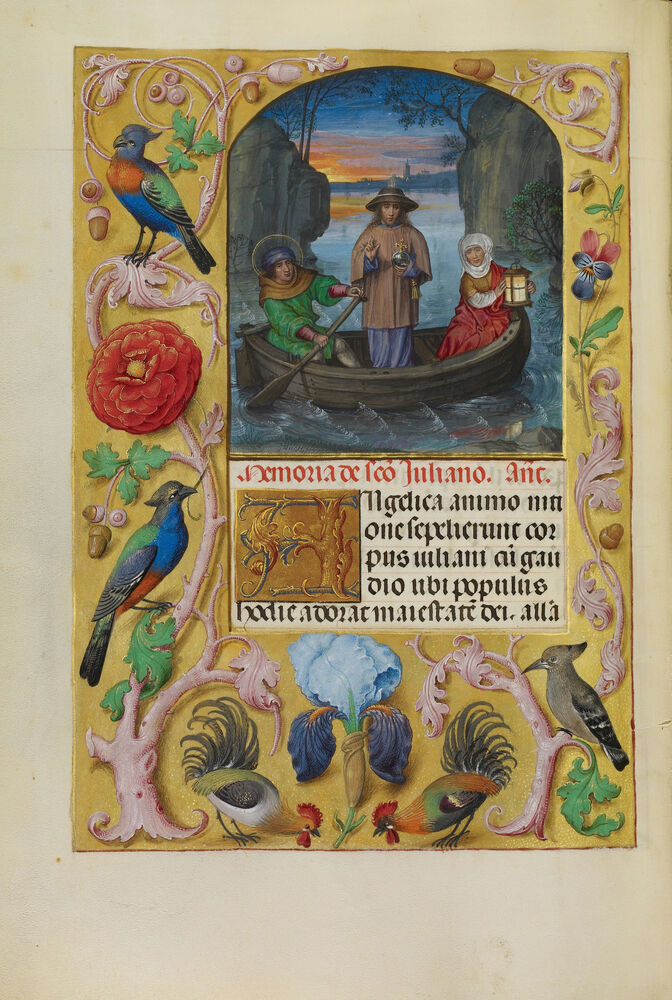 Memoria de scõ Iuliano. Anť.
Angelica animo niti
one sepelierunt cor
pus iuliani cũ gau
dio ubi populus
hodie adorat maiestatẽ dei. alľa